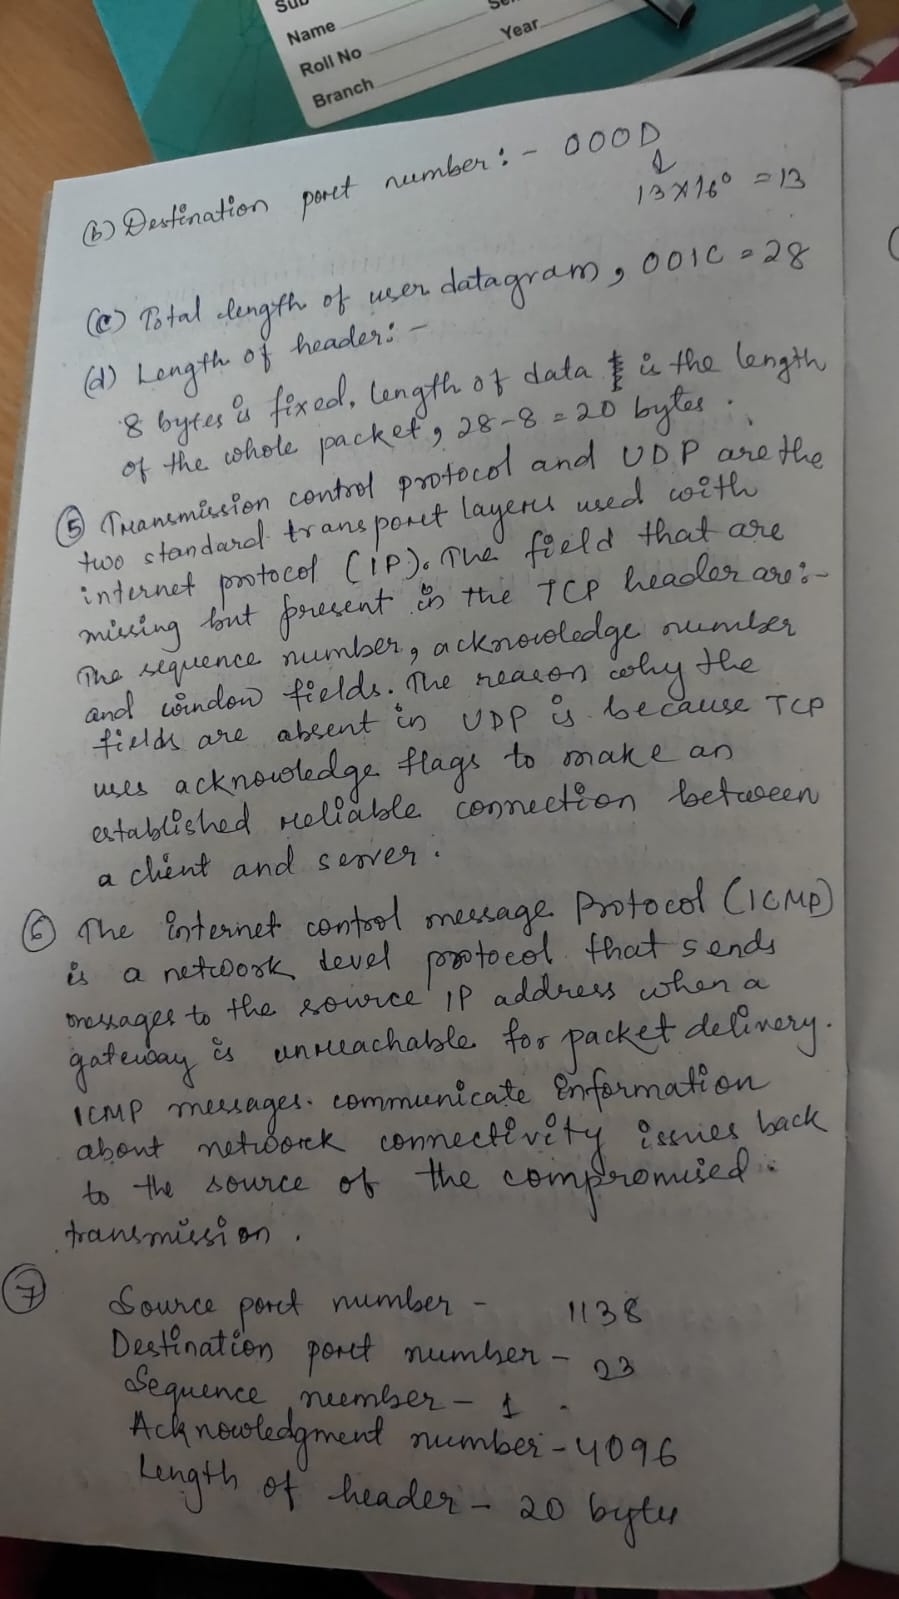 Sub
Se
Name
Year
Roll No
Branch
(b) Destination port number :- 000D
↓
13 X 16⁰ = 13
(c) Total length of user datagram, 001C = 28
(d) Length of header :-
8 bytes is fixed. Length of data is the length
of the whole packet, 28-8 = 20 bytes.
(5) Transmission control protocol and UDP are the
two standard transport layers used with
internet protocol (IP). The field that are
missing but present in the TCP header are :-
The sequence number, acknowledge number
and window fields. The reason why the
fields are absent in UDP is because TCP
uses acknowledge flags to make an
established reliable connection between
a client and server.
(6) The internet control message Protocol (ICMP)
is a network level protocol that sends
messages to the source IP address when a
gateway is unreachable for packet delivery.
ICMP messages. communicate information
about network connectivity issues back
to the source of the compromised.
transmission.
(7)
Source port number - 1138
Destination port number - 23
Sequence number - 1
Acknowledgment number - 4096
Length of header - 20 bytes